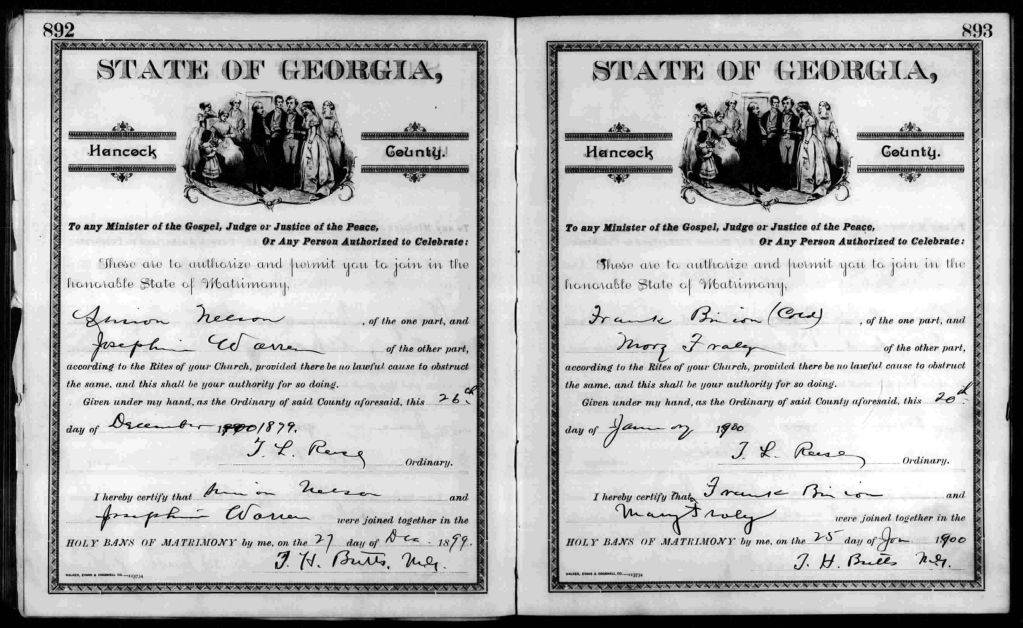 892
STATE OF GEORGIA,
Hancock County.
To any Minister of the Gospel, Judge or Justice of the Peace,
Or Any Person Authorized to Celebrate:
These are to authorize and permit you to join in the
honorable State of Matrimony,
Nelson , of the one part, and
Josephin Warren of the other part,
according to the Rites of your Church, provided there be no lawful cause to obstruct
the same, and this shall be your authority for so doing.
Given under my hand, as the Ordinary of said County aforesaid, this 26th
day of December 1879.
T. L. Reese
Ordinary.
I hereby certify that Nelson and
Josephin Warren were joined together in the
HOLY BANS OF MATRIMONY by me, on the 27 day of Dec. 1899.
T. H. Butts, M.G.
WALKER, EVANS & COGSWELL CO.
893
STATE OF GEORGIA,
Hancock County.
To any Minister of the Gospel, Judge or Justice of the Peace,
Or Any Person Authorized to Celebrate:
These are to authorize and permit you to join in the
honorable State of Matrimony,
Frank Binion (Cold) , of the one part, and
Mary Fraley of the other part,
according to the Rites of your Church, provided there be no lawful cause to obstruct
the same, and this shall be your authority for so doing.
Given under my hand, as the Ordinary of said County aforesaid, this 20th
day of January 1900
T. L. Reese
Ordinary.
I hereby certify that Frank Binion and
Mary Fraley were joined together in the
HOLY BANS OF MATRIMONY by me, on the 25 day of Jan 1900
T. H. Butts M.G.
WALKER, EVANS & COGSWELL CO.